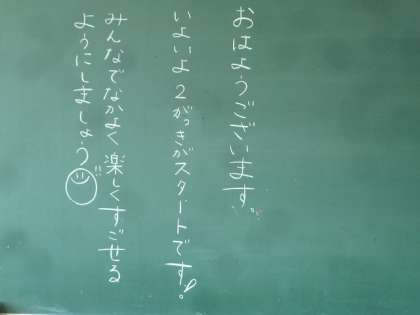 おはようございます。
いよいよ2がっきがスタートです。
みんなでなかよく楽しくすごせる
ようにしましょう